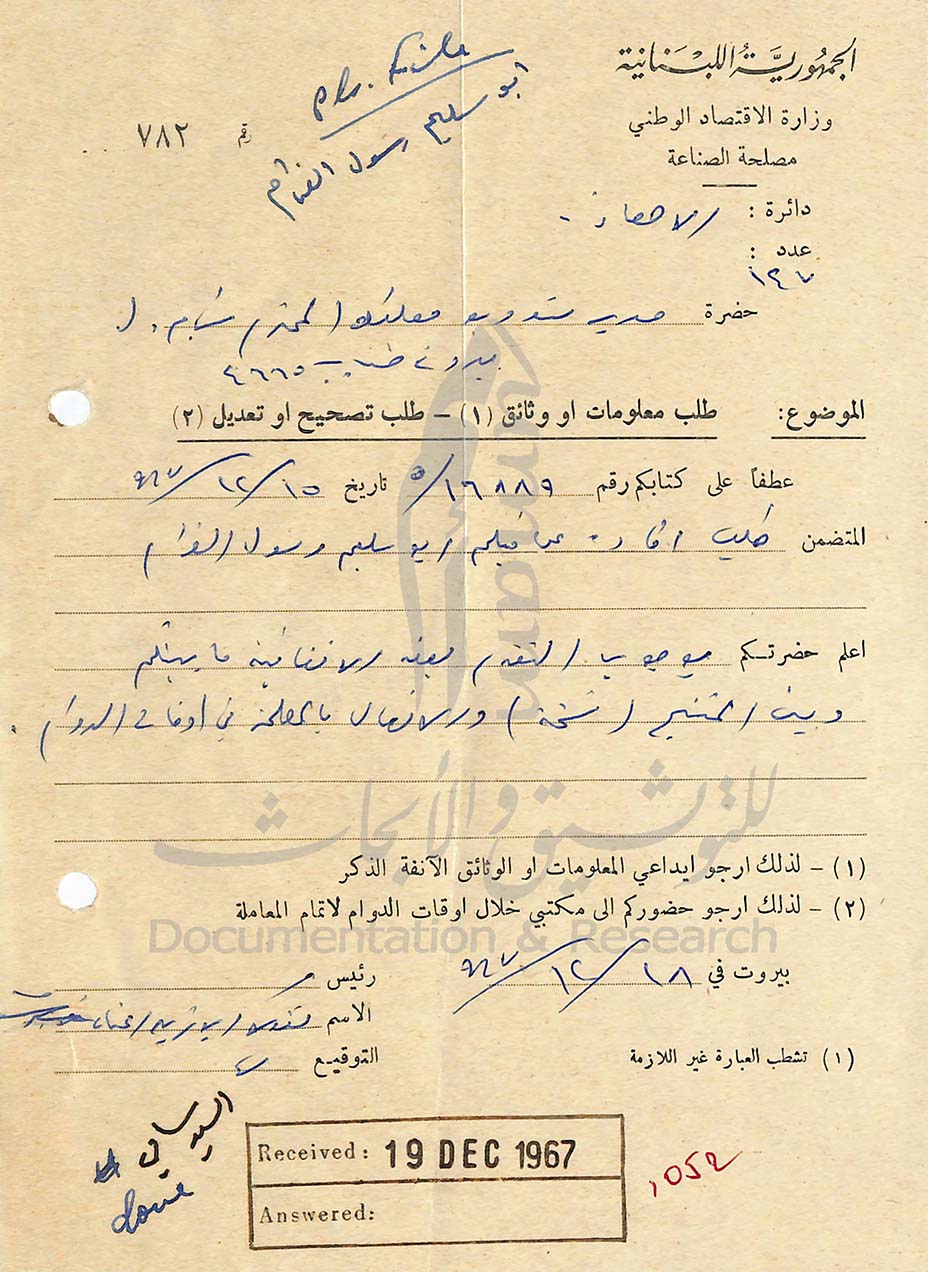 الجمهورية اللبنانية
وزارة الاقتصاد الوطني
مصلحة الصناعة
رقم ٧٨٢
pls. File
ابو سليم رسول الغرام
دائرة :
عدد :
حضرة مدير ستوديو بعلبك المحترم ش.م.ل.
بيروت ص.ب ٤٦٦٥
الموضوع: طلب معلومات او وثائق (١) – طلب تصحيح او تعديل (٢)
عطفاً على كتابكم رقم ١٦٨٨٩/٥ تاريخ ١٥/١٢/٩٦٧
المتضمن طلب افادة عن فيلم ابو سليم رسول الغرام
اعلم حضرتكم بوجوب التقدم بعقد الاتفاقية ما بينكم
وبين المنتج (نسخة) والاتصال بالمصلحة في اوقات الدوام .
umam
للتوثيق والأبحاث
Documentation & Research
(١) – لذلك ارجو ايداعي المعلومات او الوثائق الآنفة الذكر
(٢) – لذلك ارجو حضوركم الى مكتبي خلال اوقات الدوام لاتمام المعاملة
بيروت في ١٨/١٢/٩٦٧
رئيس
الاسم
التوقيع
(١) تشطب العبارة غير اللازمة
السيد سامي
done
Received: 19 DEC 1967
Answered:
١٠٥٢